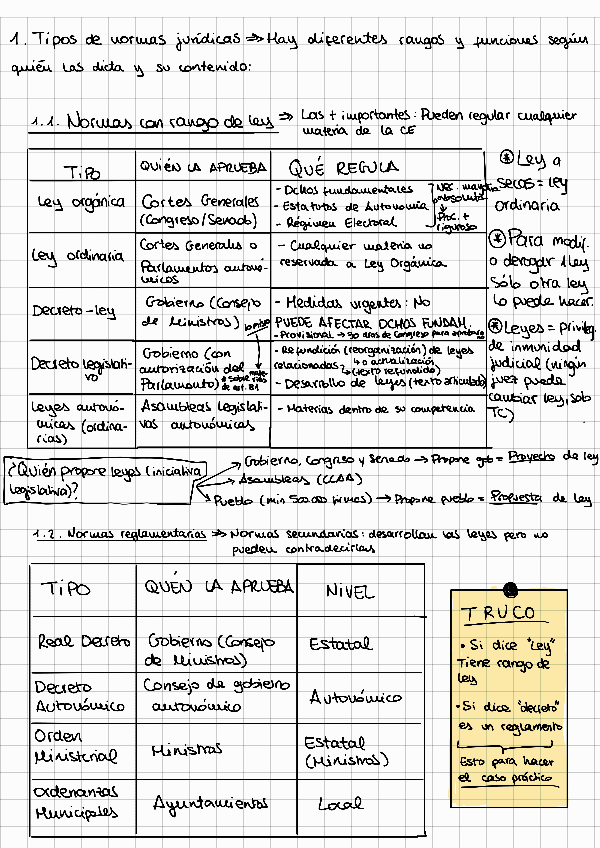 1. Tipos de normas jurídicas => Hay diferentes rangos y funciones según
quién las dicta y su contenido:
1.1. Normas con rango de ley => Las + importantes: Pueden regular cualquier
materia de la CE
TIPO QUIÉN LA APRUEBA QUÉ REGULA
Ley orgánica
Cortes Generales
(Congreso/Senado)
- Dchos fundamentales
- Estatutos de Autonomía
- Régimen Electoral
Nec. mayoría
absoluta
↓
Proc. +
riguroso
Ley ordinaria
Cortes Generales o
Parlamentos autonó-
micos
- Cualquier materia no
reservada a Ley Orgánica
Decreto-ley
Gobierno (Consejo
de Ministros)
- Medidas urgentes: No
PUEDE AFECTAR DCHOS FUNDAM.
- Provisional → 30 días de Congreso para aprobarlo
Decreto legislati-
vo
Gobierno (con
autorización del
Parlamento)
- Refundición (reorganización) de leyes
relacionadas ↳ o actualización
↳ (texto refundido)
- Desarollo de leyes (texto articulado)
Leyes autonó-
micas (ordina-
rias)
Asambleas legislati-
vas autonómicas
- Materias dentro de su competencia
* Ley a
secas = ley
ordinaria
* Para modif.
o derogar 1 ley
sólo otra ley
lo puede hacer.
* Leyes = privileg.
de inmunidad
judicial (ningún
juez puede
cambiar ley, solo
TC)
¿Quién propone leyes (iniciativa
legislativa)?
→ Gobierno, Congreso y Senado → Propone gob = Proyecto de ley
→ Asambleas (CCAA)
→ Pueblo (min 500.000 firmas) → Propone pueblo = Propuesta de ley
1.2. Normas reglamentarias => Normas secundarias: desarrollan las leyes pero no
pueden contradecirlas
TIPO QUIÉN LA APRUEBA NIVEL
Real Decreto
Gobierno (Consejo
de Ministros)
Estatal
Decreto
Autonómico
Consejo de gobierno
autonómico
Autonómico
Orden
Ministerial
Ministros
Estatal
(Ministros)
Ordenanzas
Municipales
Ayuntamientos
Local
TRUCO
• Si dice "Ley"
Tiene rango de
ley
• Si dice "decreto"
es un reglamento
Esto para hacer
el caso práctico